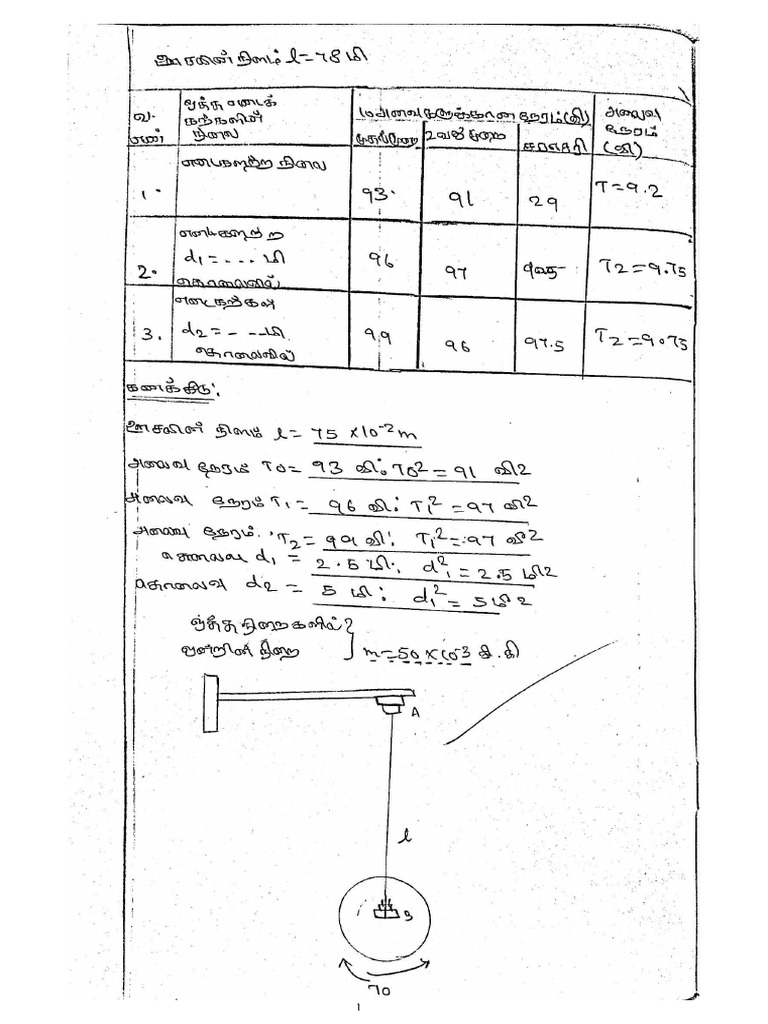 ஊசலின் நீளம் l = 78 மி
வ. எண்
ஒத்த எடைக் கற்களின் நிலை
அலைவுகளுக்கான நேரம் (வி)
அலைவு நேரம் (வி)
முதல்முறை
2வது முறை
சராசரி
1. எடைகளற்ற நிலை 93. 91 29 T = 9.2
2. d1 = - . . . மி தொலைவில் 96 97 T2 = 9.75
3. எடைகற்கள் d2 = - - - மி. தொலைவில் 99 96 97.5 T2 = 9.75
கணக்கீடு:
ஊசலின் நீளம் l = 75 x10-2 m
அலைவு நேரம் T0 = 93 வி: T0² = 91 வி2
அலைவு நேரம் T1 = 96 வி: T1² = 97 வி2
அலைவு நேரம். T2 = 99 வி: T1² = 97 வி2
தொலைவு d1 = 2.5 மி. d1² = 2.5 மி2
தொலைவு d2 = 5 மி: d1² = 5 மி2
ஒத்த நிறைகளில்
ஒன்றின் நிறை } m = 50 x 10-3 கி. கி
A
l
B
T0
1